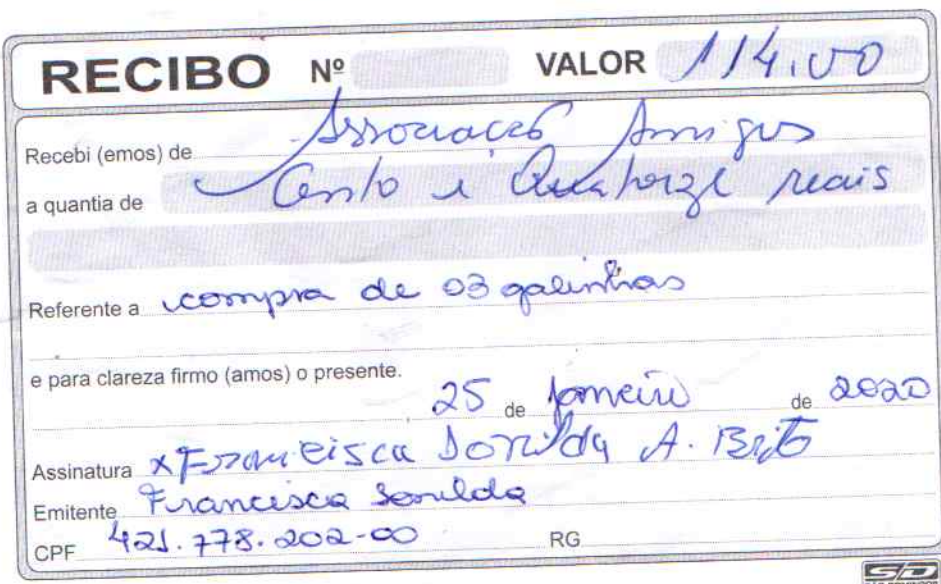 RECIBO Nº VALOR 114.00
Recebi (emos) de Associação Amigos
a quantia de Cento i Quatorze reais
Referente a compra de 03 galinhas
e para clareza firmo (amos) o presente.
25 de Janeiro de 2020
Assinatura x Francisca Sonilda A. Brito
Emitente Francisca Sonilda
CPF 421.778.202-00 RG
SD